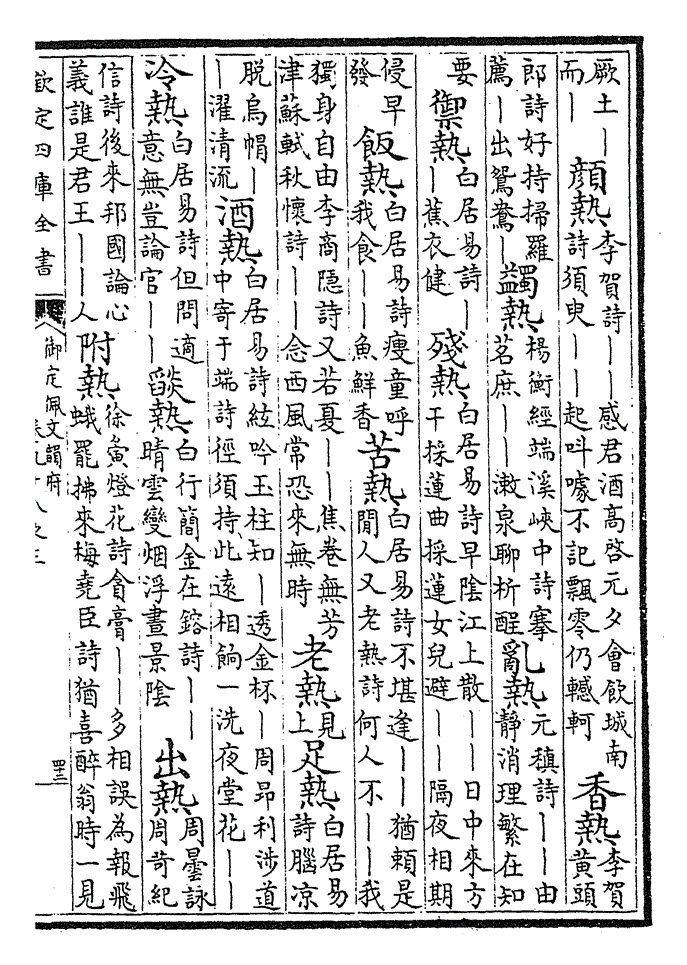 厥土｜
而｜
顔熱
李賀詩｜｜感君酒高啓元夕會飲城南
詩須臾｜｜起呌噱不記飄零仍轗軻
香熱
李賀
黄頭
郎詩好持掃羅
薦｜出鴛鴦｜
蠲熱
楊衡經端溪峽中詩搴
茗庶｜｜漱泉聊析酲
亂熱
元稹詩｜｜由
静消理繁在知
要
御熱
白居易詩｜
｜蕉衣健
殘熱
白居易詩早陰江上散｜｜日中來方
干採蓮曲採蓮女兒避｜｜隔夜相期
侵早
發
飯熱
白居易詩瘦童呼
我食｜｜魚鮮香
苦熱
白居易詩不堪逢｜｜猶頼是
閒人又老熱詩何人不｜｜我
獨身自由李商隱詩又若憂｜｜焦卷無芳
津蘇軾秋懷詩｜｜念西風常恐來無時
老熱
見
上
足熱
白居易
詩腦凉
脱烏帽｜
｜濯清流
酒熱
白居易詩絃吟玉柱知｜透金杯｜周昂利涉道
中寄于端詩徑須持此遠相餉一洗夜堂花｜｜
冷熱
白居易詩但問適
意無豈論官｜｜
燄熱
白行簡金在鎔詩｜｜
晴雲變烟浮晝景陰
出熱
周曇詠
周苛紀
信詩後來邦國論心
義誰是君王｜｜人
附熱
徐夤燈花詩貪膏｜｜多相誤為報飛
蛾罷拂來梅堯臣詩猶喜醉翁時一見
欽定四庫全書
御定佩文韻府
四三